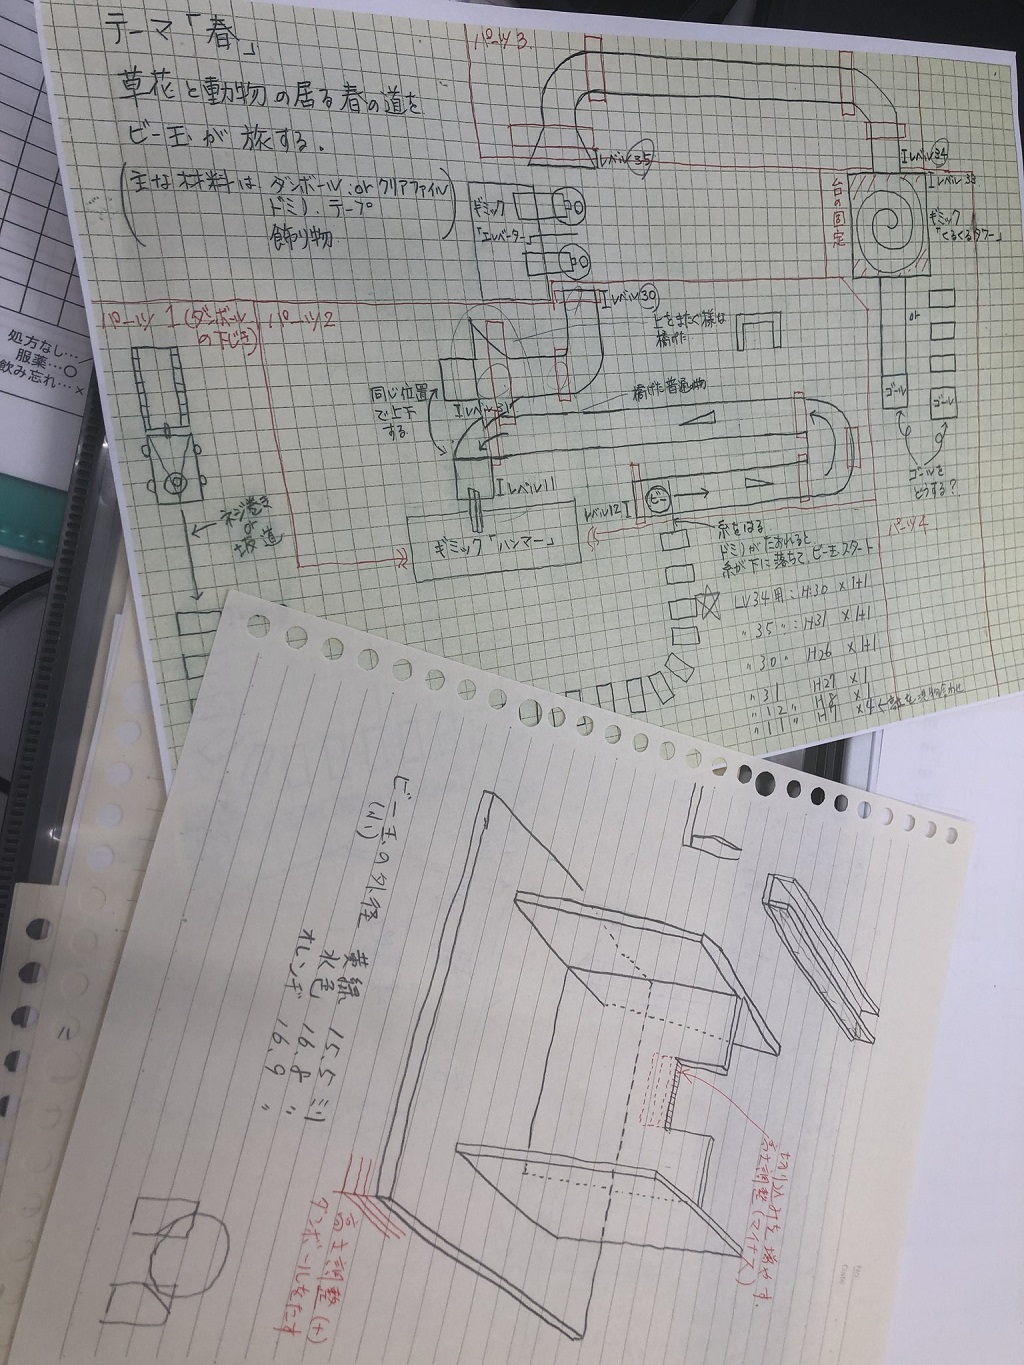 テーマ「春」
草花と動物の居る春の道を
ビー玉が旅する.
(主な材料は ダンボール or クリアファイル
ドミノ、テープ
飾り物)
パーツ3
レベル35
レベル34
レベル33
台の固定
ギミック
「くるくるタワー」
ギミック
「エレベーター」
パーツ1 (ダンボール
の下じき)
パーツ2
レベル30
上をまたぐ様な
橋げた
橋げた普通の物
同じ位置
で上下
する.
レベル31
レベル11
ギミック「ハンマー」
レベル12
ビー
or
ゴール
ゴール
ゴールを
どうする?
パーツ4
ネジ巻き
or
坂道
糸をはる
ドミノがたおれると
糸が下に落ちて、ビー玉スタート
LV34用:H30 ×1+1
〃 35 〃:H31 ×1+1
〃 30 〃 H26 ×1+1
〃 31 H27 ×1
〃 12 〃 H8 ×1
〃 11 〃 H7 ×4
処方なし…
服薬…○
飲み忘れ…×
ビー玉の外径
(小)
黄緑 15.5ミリ
水色 16.8 〃
オレンヂ 16.9 〃
切り込みを増やす.
高さ調整(マイナス)
高さ調整(+)
ダンボールをたす